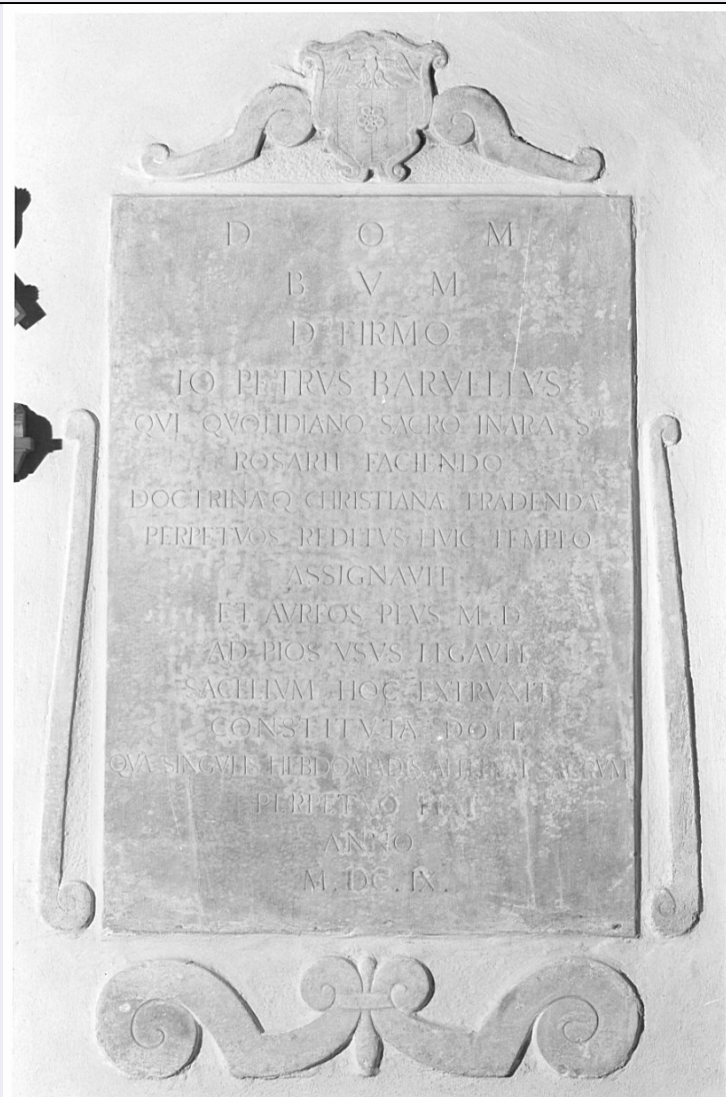 D O M
B V M
D FIRMO
IO PETRVS BARVELLIVS
QVI QVOTIDIANO SACRO IN ARA S
ROSARII FACIENDO
DOCTRINAQ CHRISTIANA TRADENDA
PERPETVOS REDITVS HVIC TEMPLO
ASSIGNAVIT
ET AVREOS PLVS M D
AD PIOS VSVS LEGAVIT
SACELLVM HOC EXTRVXIT
CONSTITVTA DOTE
QVA SINGVLIS HEBDOMADIS SACRVM
PERPETVO
ANNO
M. DC. IX.